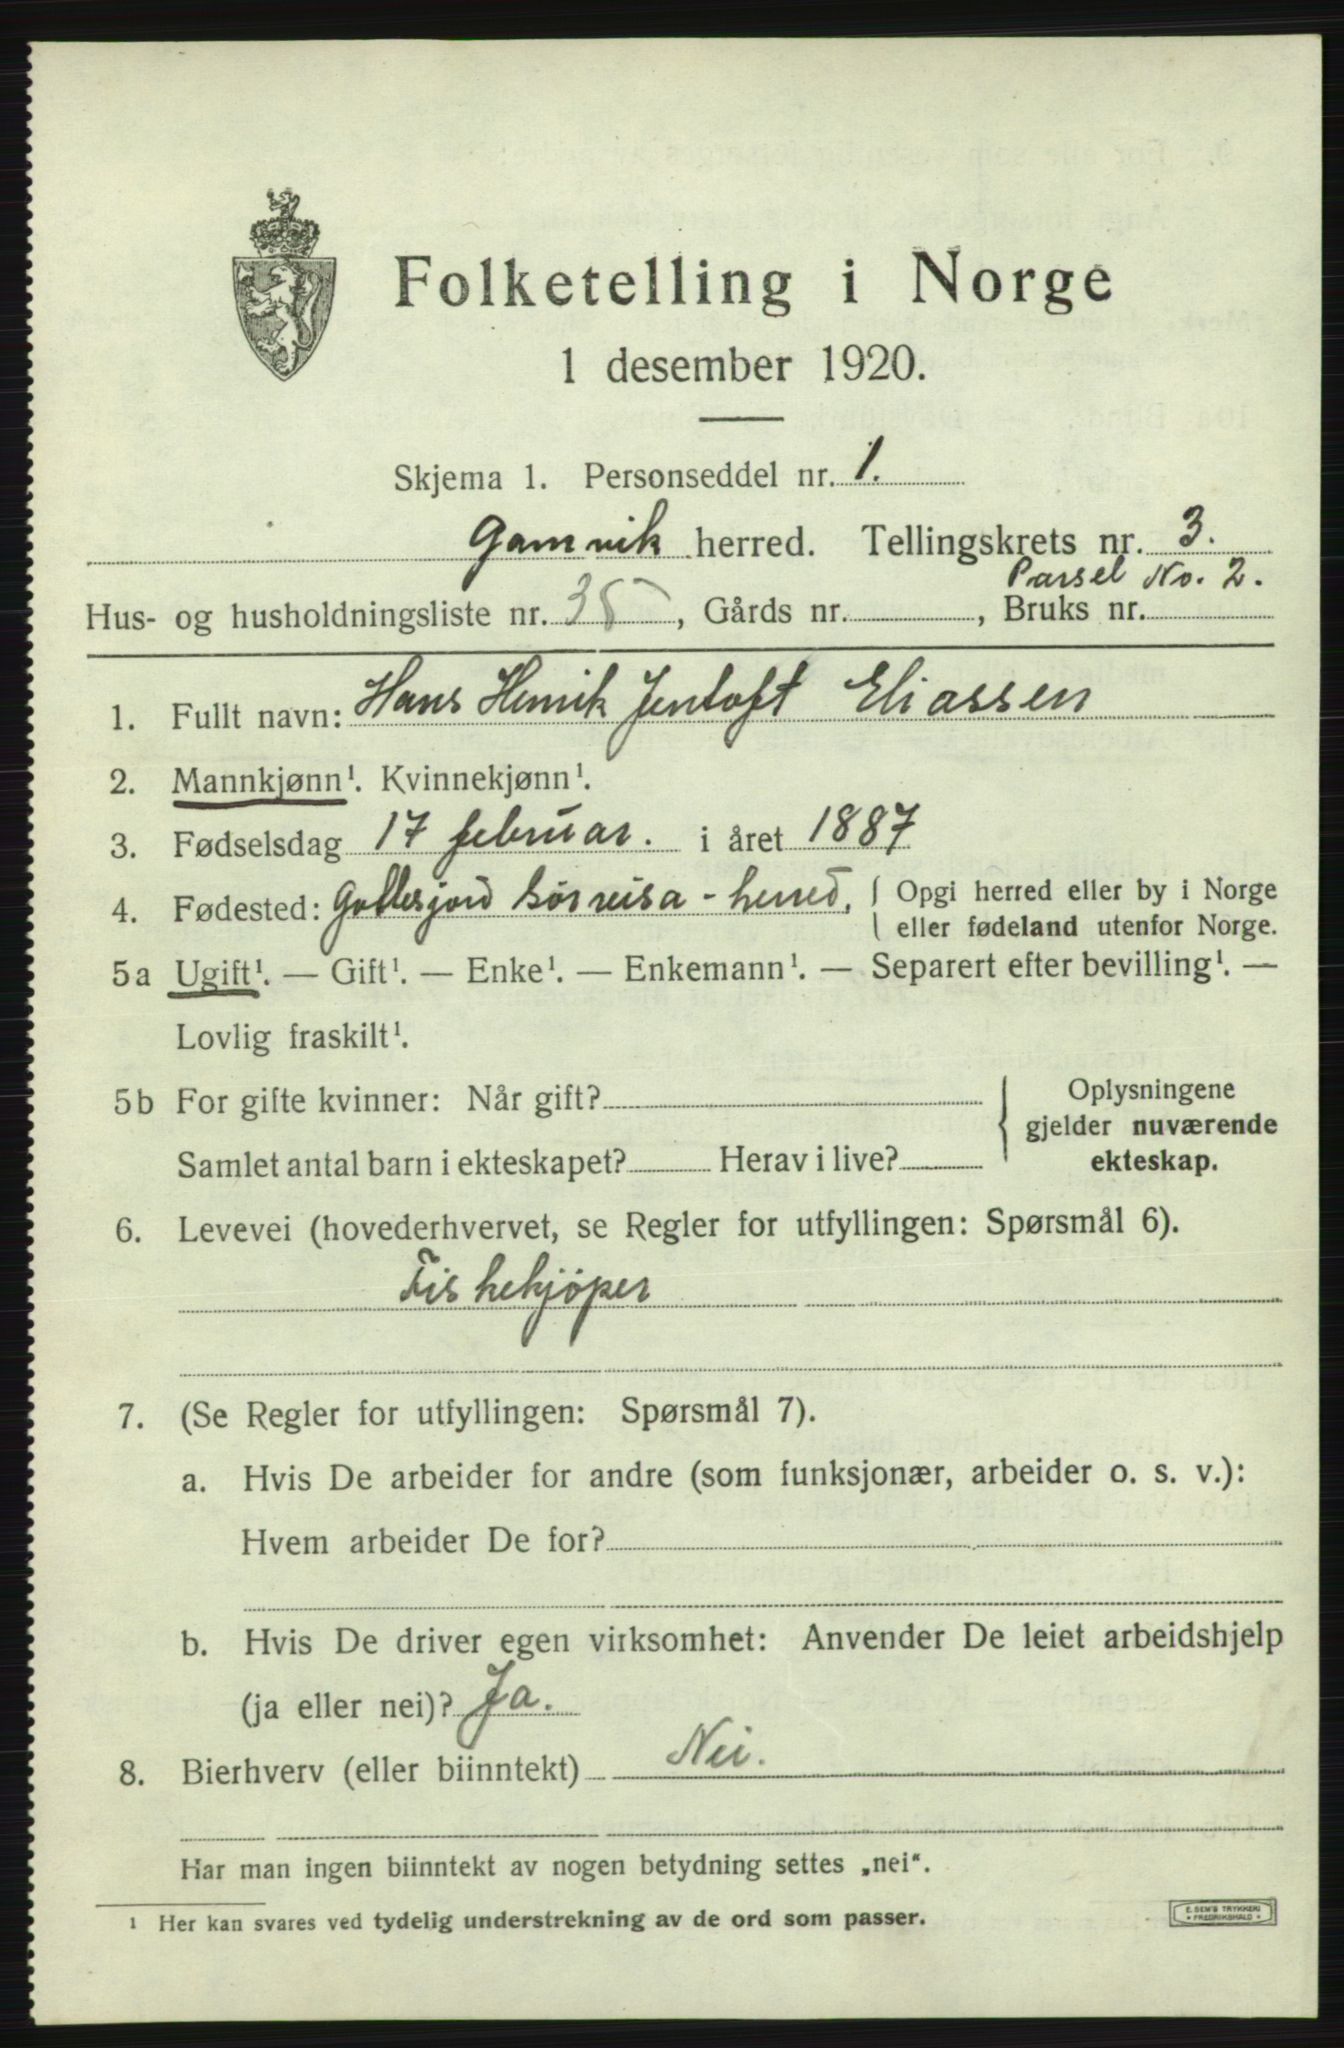 Folketelling i Norge
1 desember 1920.
Skjema 1. Personseddel nr. 1.
Gamvik herred. Tellingskrets nr. 3.
Parsel No. 2.
Hus- og husholdningsliste nr. 35, Gårds nr. , Bruks nr.
1. Fullt navn: Hans Henrik Jentoft Eliassen
2. Mannkjønn¹. Kvinnekjønn¹.
3. Fødselsdag 17 februar. i året 1887
4. Fødested: Sørreisa - herred, { Opgi herred eller by i Norge
eller fødeland utenfor Norge.
5a Ugift¹. — Gift¹. — Enke¹. — Enkemann¹. — Separert efter bevilling¹. —
Lovlig fraskilt¹.
5b For gifte kvinner: Når gift? { Oplysningene
gjelder nuværende
Samlet antal barn i ekteskapet? Herav i live? ekteskap.
6. Levevei (hovederhvervet, se Regler for utfyllingen: Spørsmål 6).
Fiskekjöper
7. (Se Regler for utfyllingen: Spørsmål 7).
a. Hvis De arbeider for andre (som funksjonær, arbeider o. s. v.):
Hvem arbeider De for?
b. Hvis De driver egen virksomhet: Anvender De leiet arbeidshjelp
(ja eller nei)? Ja.
8. Bierhverv (eller biinntekt) Nei.
Har man ingen biinntekt av nogen betydning settes „nei“.
¹ Her kan svares ved tydelig understrekning av de ord som passer.
E. SEM'S TRYKKERI
• FREDRIKSHALD •